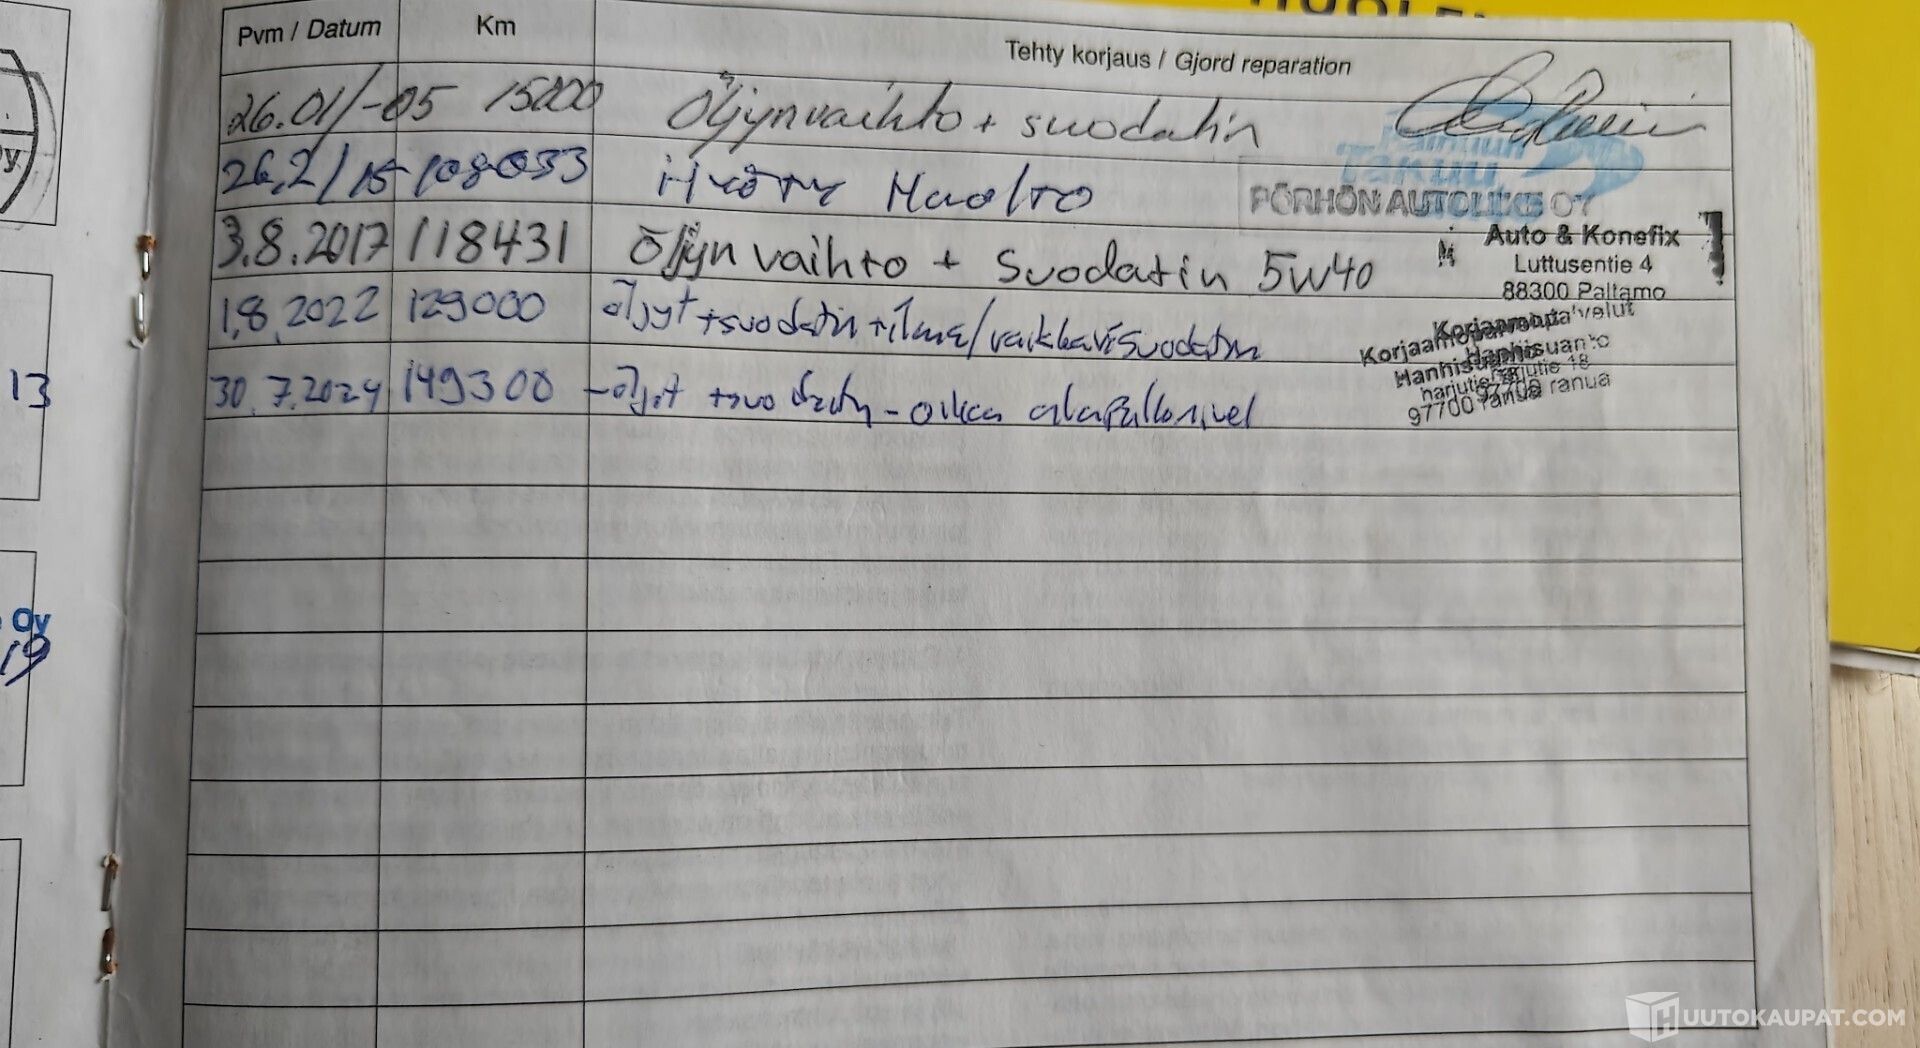 Pvm / Datum Km Tehty korjaus / Gjord reparation
26.01/-05 15200 Öljynvaihto + suodatin
Takuu
26,2/15 108033 Huolto
PÖRHÖN AUTOLIIKE OY
3.8.2017 118431 Öljyn vaihto + Suodatin 5W40
Auto & Konefix
Luttusentie 4
88300 Paltamo
1,8,2022 129000 öljyt + suodatin + ilma/raikkavisuodatin
Korjaamopalvelut
Hanhisuanto
harjutie 18
97700 ranua
30.7.2024 149300 -öljyt + suodatin - oikea alapallonivel
13
Oy
19
UUTOKAUPAT.COM